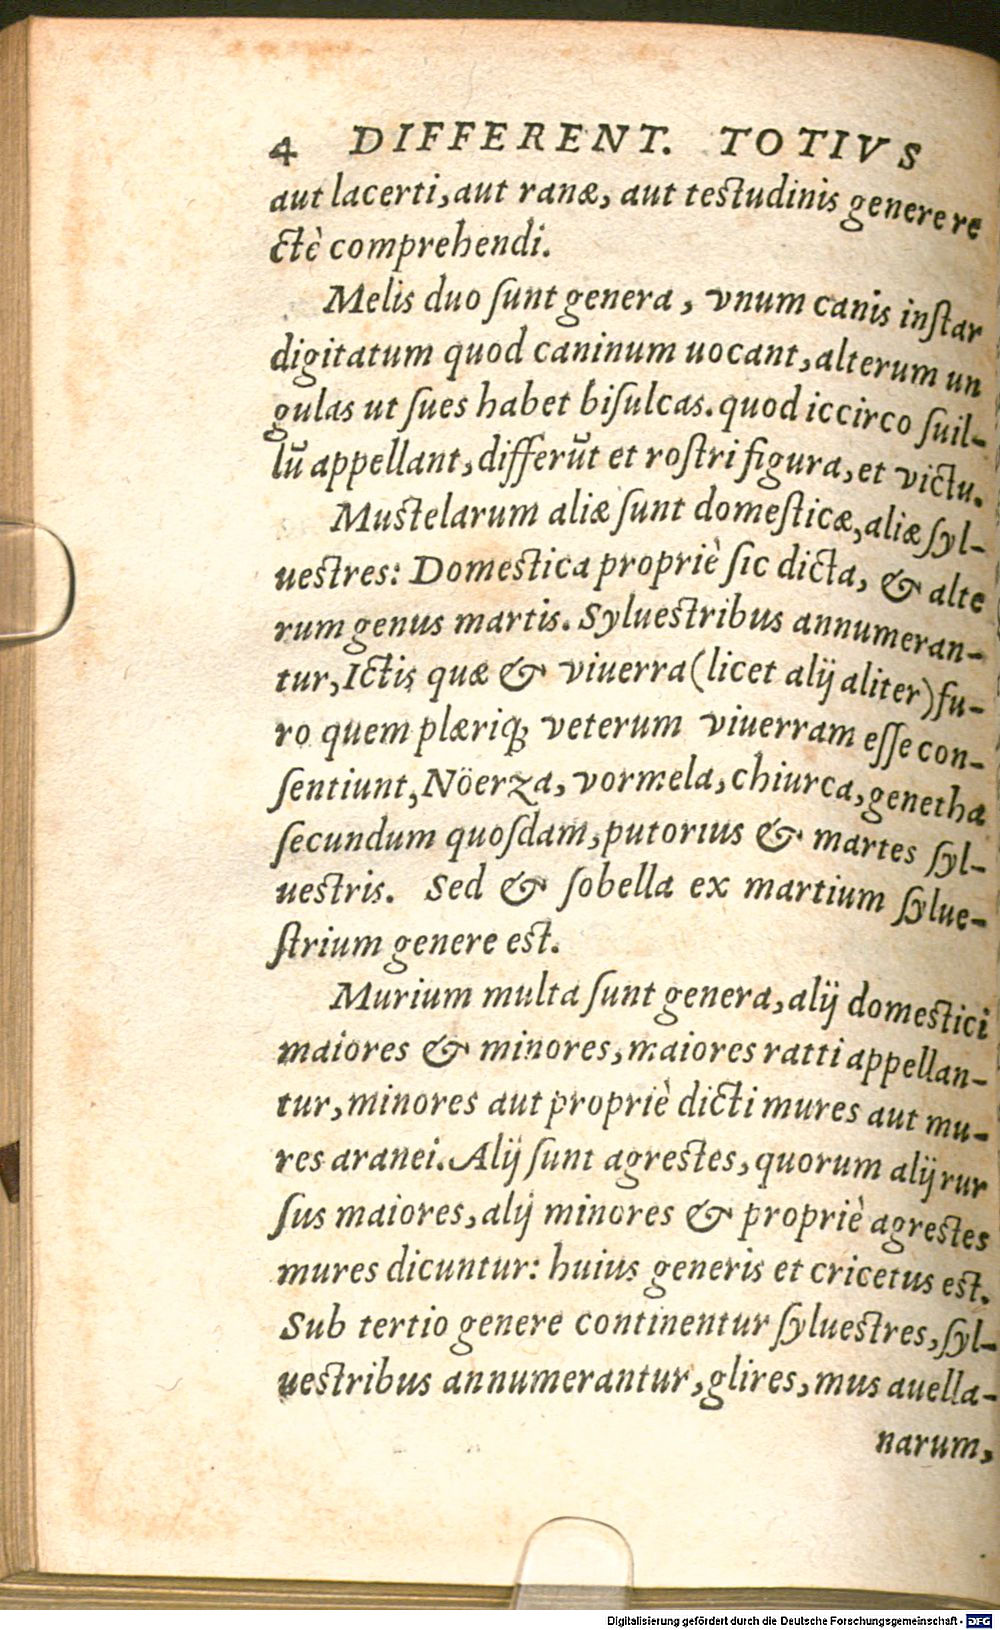 4 DIFFERENT. TOTIVS
aut lacerti, aut ranæ, aut testudinis genere re
ctè comprehendi.
Melis duo ſunt genera, vnum canis inſtar
digitatum quod caninum uocant, alterum un
gulas ut ſues habet biſulcas. quod iccirco ſuil-
lū appellant, differūt et roſtri figura, et victu.
Mustelarum aliæ ſunt domeſticæ, aliæ ſyl-
uestres: Domestica propriè ſic dicta, & alte
rum genus martis. Syluestribus annumeran-
tur, Ictis quæ & viuerra (licet alij aliter) fu-
ro quem plæriq; veterum viuerram eſſe con-
ſentiunt, Nöerza, vormela, chiurca, genetha
ſecundum quoſdam, putorius & martes ſyl-
uestris. Sed & ſobella ex martium ſylue-
ſtrium genere est.
Murium multa ſunt genera, alij domestici
maiores & minores, maiores ratti appellan-
tur, minores aut propriè dicti mures aut mu-
res aranei. Alij ſunt agrestes, quorum alij rur
ſus maiores, alij minores & propriè agrestes
mures dicuntur: huius generis et cricetus est.
Sub tertio genere continentur ſyluestres, ſyl-
uestribus annumerantur, glires, mus auella-
narum,
Digitalisierung gefördert durch die Deutsche Forschungsgemeinschaft - DFG